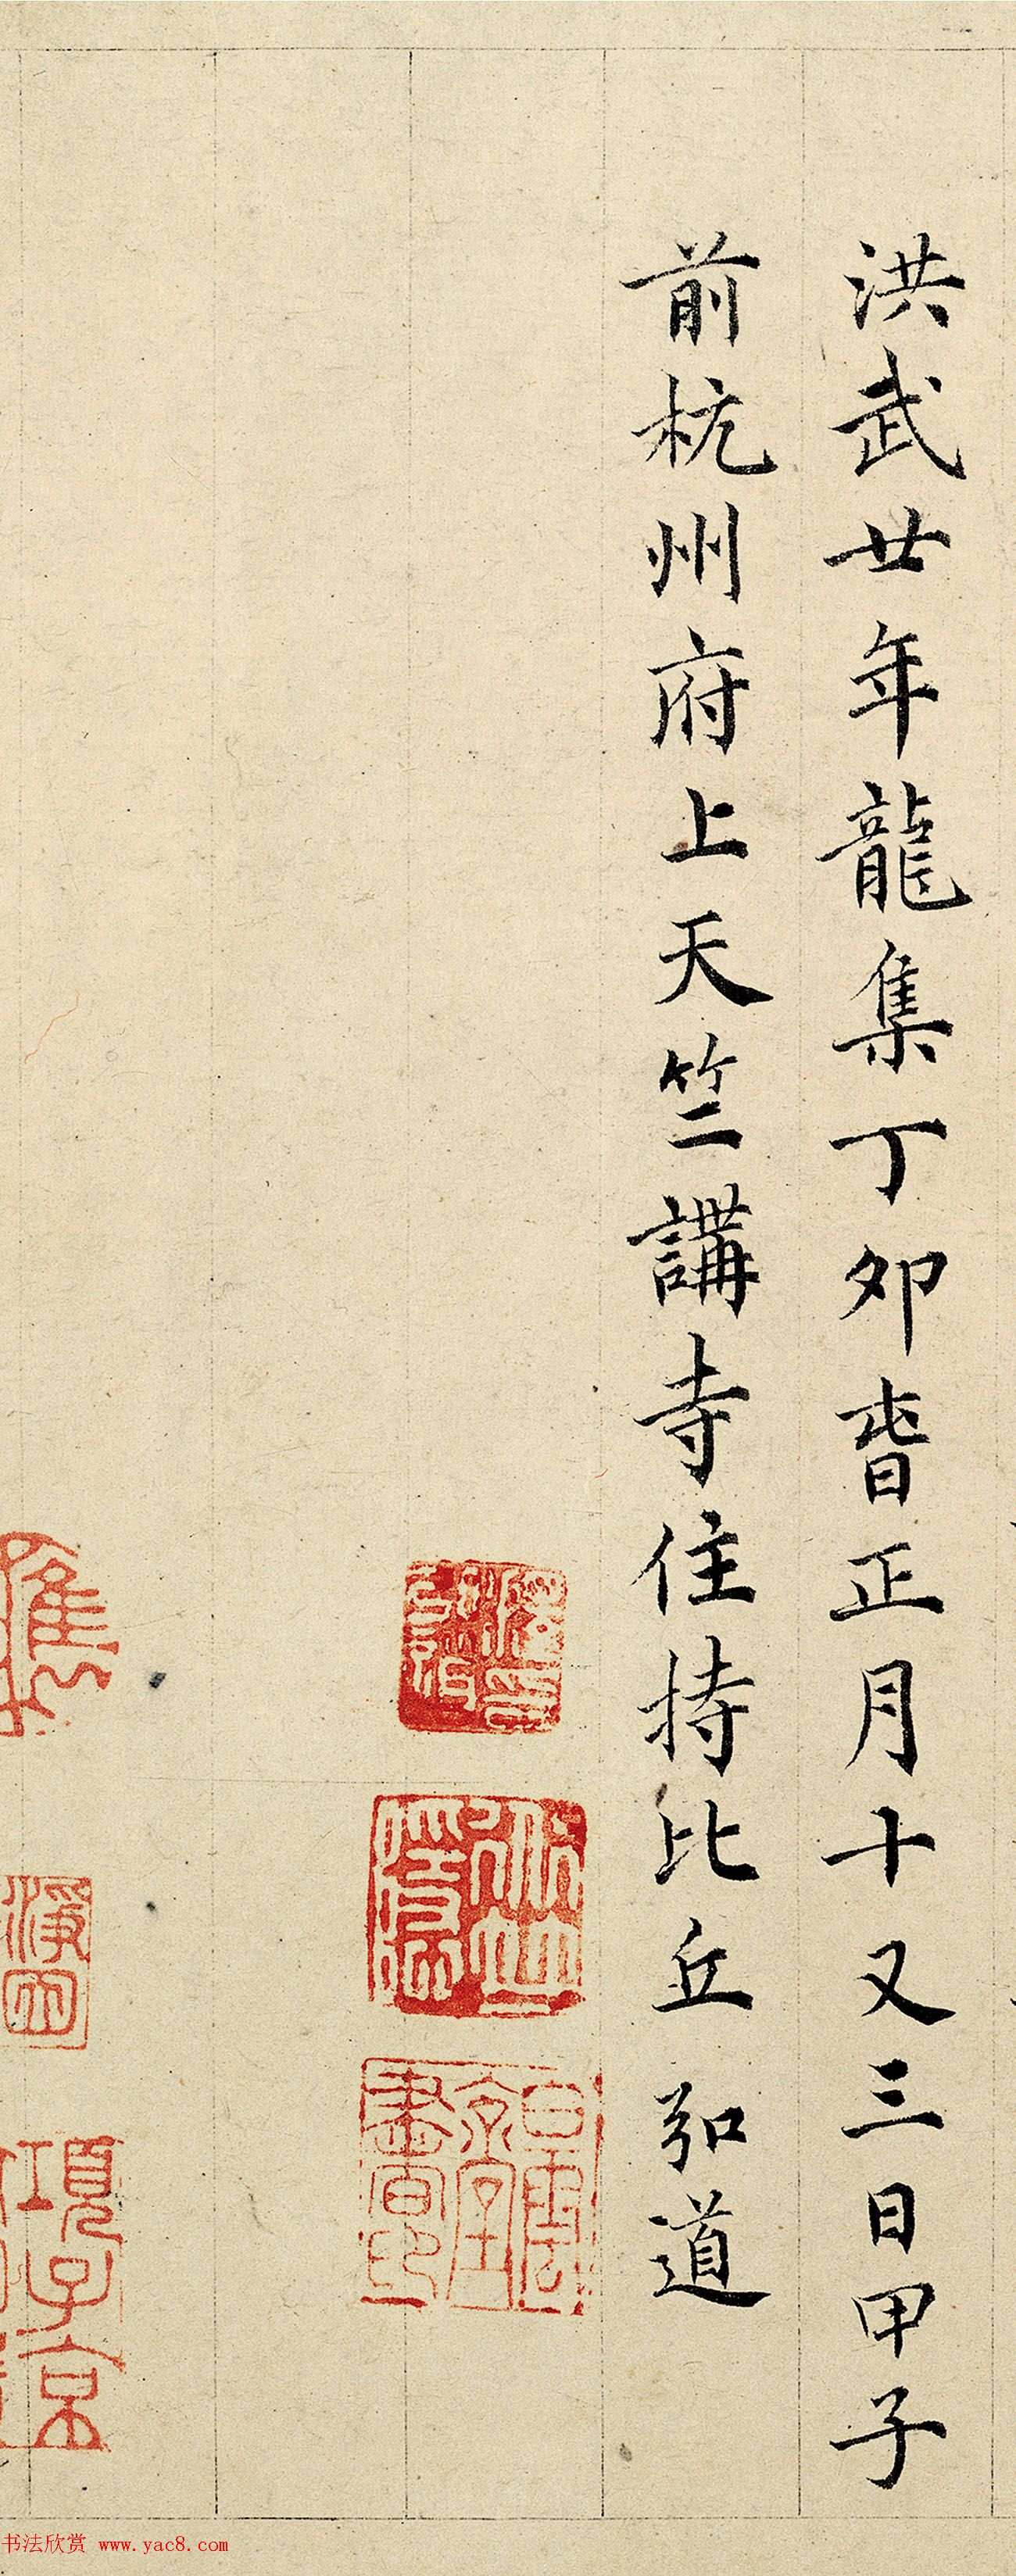 洪武廿年龍集丁卯旹正月十又三日甲子
前杭州府上天竺講寺住持比丘弘道
項子京
书法欣赏 www.yac8.com